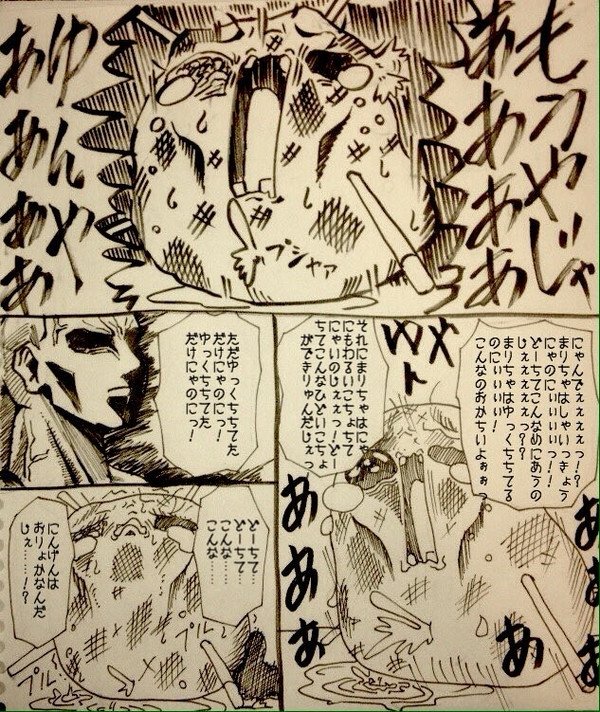 もうやじゃ
ああああ
ゆんやめ、
ああああ
プシャァ
にゃんでぇぇぇっ!?
まりちゃはしゃいっきょう
なのにぃぃぃっ!!
どーちてこんなめにあうの
じぇぇぇぇっ??
まりちゃはゆっくちちてる
のにぃぃぃぃ!
こんなのおかちいよぉぉっ
それにまりちゃはにゃ
にもわるいこちょちて
にゃいのじぇっ!どー
ちてこんなひどいこちょ
ができりゅんだじぇっ
ゆんやー
あああ
あ
ただゆっくちちてた
だけにゃのにっ!
ゆっくちちてた
だけにゃのにっ!
どーちて…
どーちて
こんな…
こんな……
プル
プル
にんげんは
おりょかなんだ
じぇ……!?